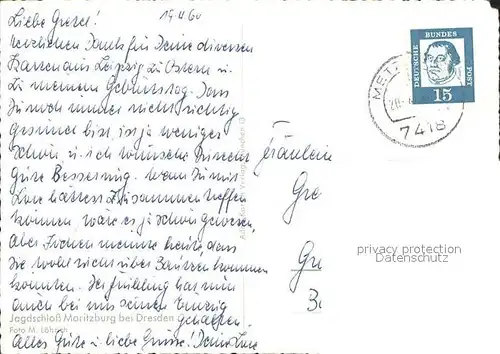 Liebe Gretel!
19.4.60
Herzlichen Dank für Deine diversen
Karten aus Leipzig zu Ostern u.
zu meinem Geburtstag. Dass
Du noch immer nicht richtig
gesund bist, ist ja weniger
schön u. ich wünsche Dir recht
gute Besserung. Wenn Du mit
Lore hättest zusammentreffen
können, wäre es ja schön gewesen,
aber Jochen meinte heute, dass
Sie wohl nicht über Bautzen kommen
konnten. Der Frühling hat nun
auch bei uns seinen Einzug
gehalten.
Alles Gute u. liebe Grüsse! Deine Lore
Jagdschloß Moritzburg bei Dresden
Foto M. Löhrich
DEUTSCHE BUNDESPOST
15
MET
7418
Fräulein
Gre
Gr
privacy protection
Datenschutz